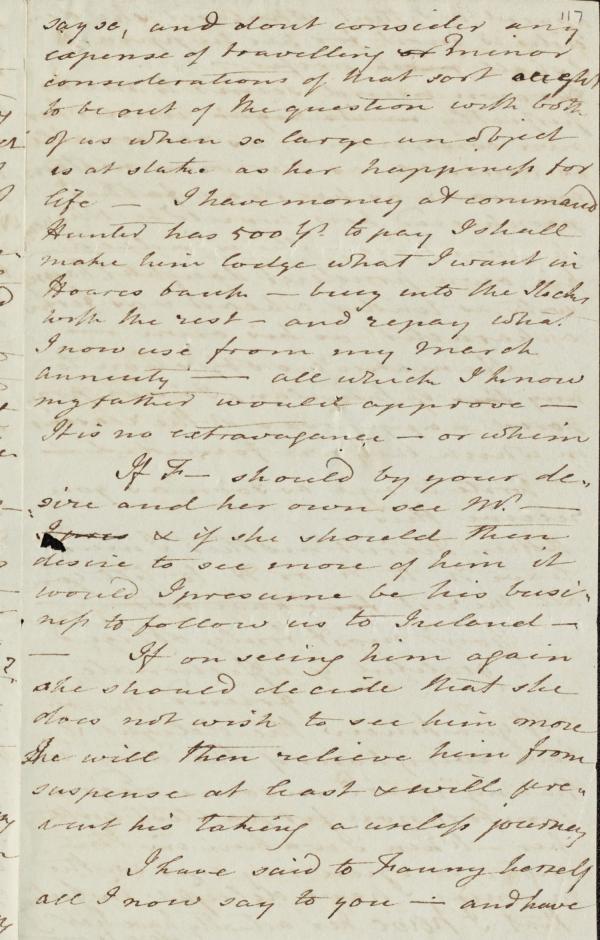 117
say so, and dont consider any
expense of travelling or minor
considerations of that sort ought
to be out of the question with both
of us when so large an object
is at stake as her happiness for
life — I have money at command
Hunter has 500 to pay I shall
make him lodge what I want in
Hoares bank — buy into the Stocks
with the rest — and repay what
I now use from my March
annuity — all which I know
my father would approve —
It is no extravagance — or whim
If F— should by your de-
sire and her own see Mr. —
& if she should then
desire to see more of him it
would I presume be his busi-
ness to follow us to Ireland —
— If on seeing him again
she should decide that she
does not wish to see him more
she will then relieve him from
suspense at least & will pre-
vent his taking a useless journey
I have said to Fanny herself
all I now say to you — and have